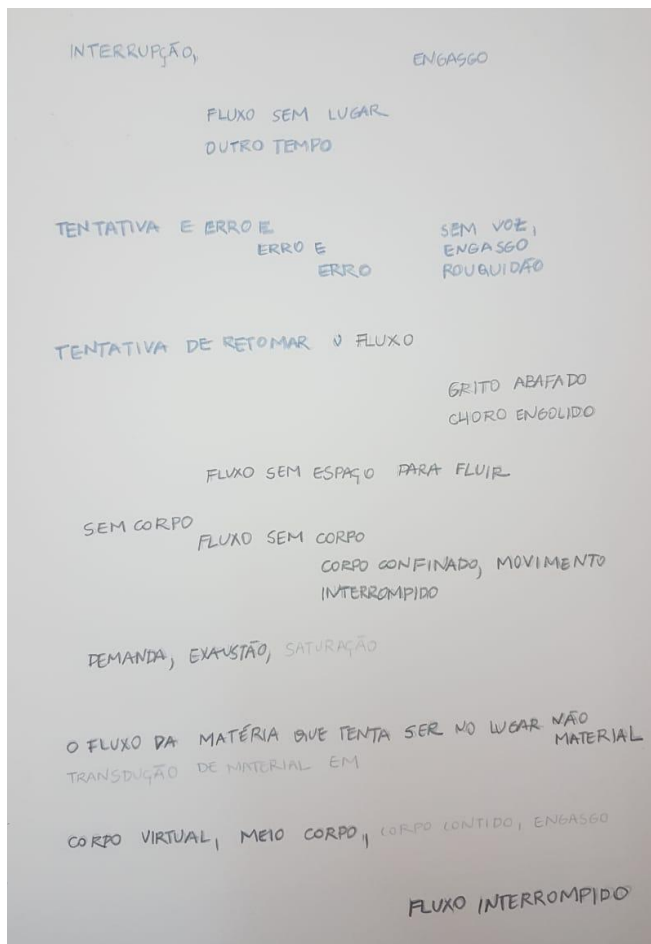 INTERRUPÇÃO, ENGASGO
FLUXO SEM LUGAR
OUTRO TEMPO
TENTATIVA E ERRO E
ERRO E
ERRO
SEM VOZ,
ENGASGO
ROUQUIDÃO
TENTATIVA DE RETOMAR O FLUXO
GRITO ABAFADO
CHORO ENGOLIDO
FLUXO SEM ESPAÇO PARA FLUIR
SEM CORPO
FLUXO SEM CORPO
CORPO CONFINADO, MOVIMENTO
INTERROMPIDO
DEMANDA, EXAUSTÃO, SATURAÇÃO
O FLUXO DA MATÉRIA QUE TENTA SER NO LUGAR NÃO
MATERIAL
TRANSDUÇÃO DE MATERIAL EM
CORPO VIRTUAL, MEIO CORPO, CORPO CONTIDO, ENGASGO
FLUXO INTERROMPIDO